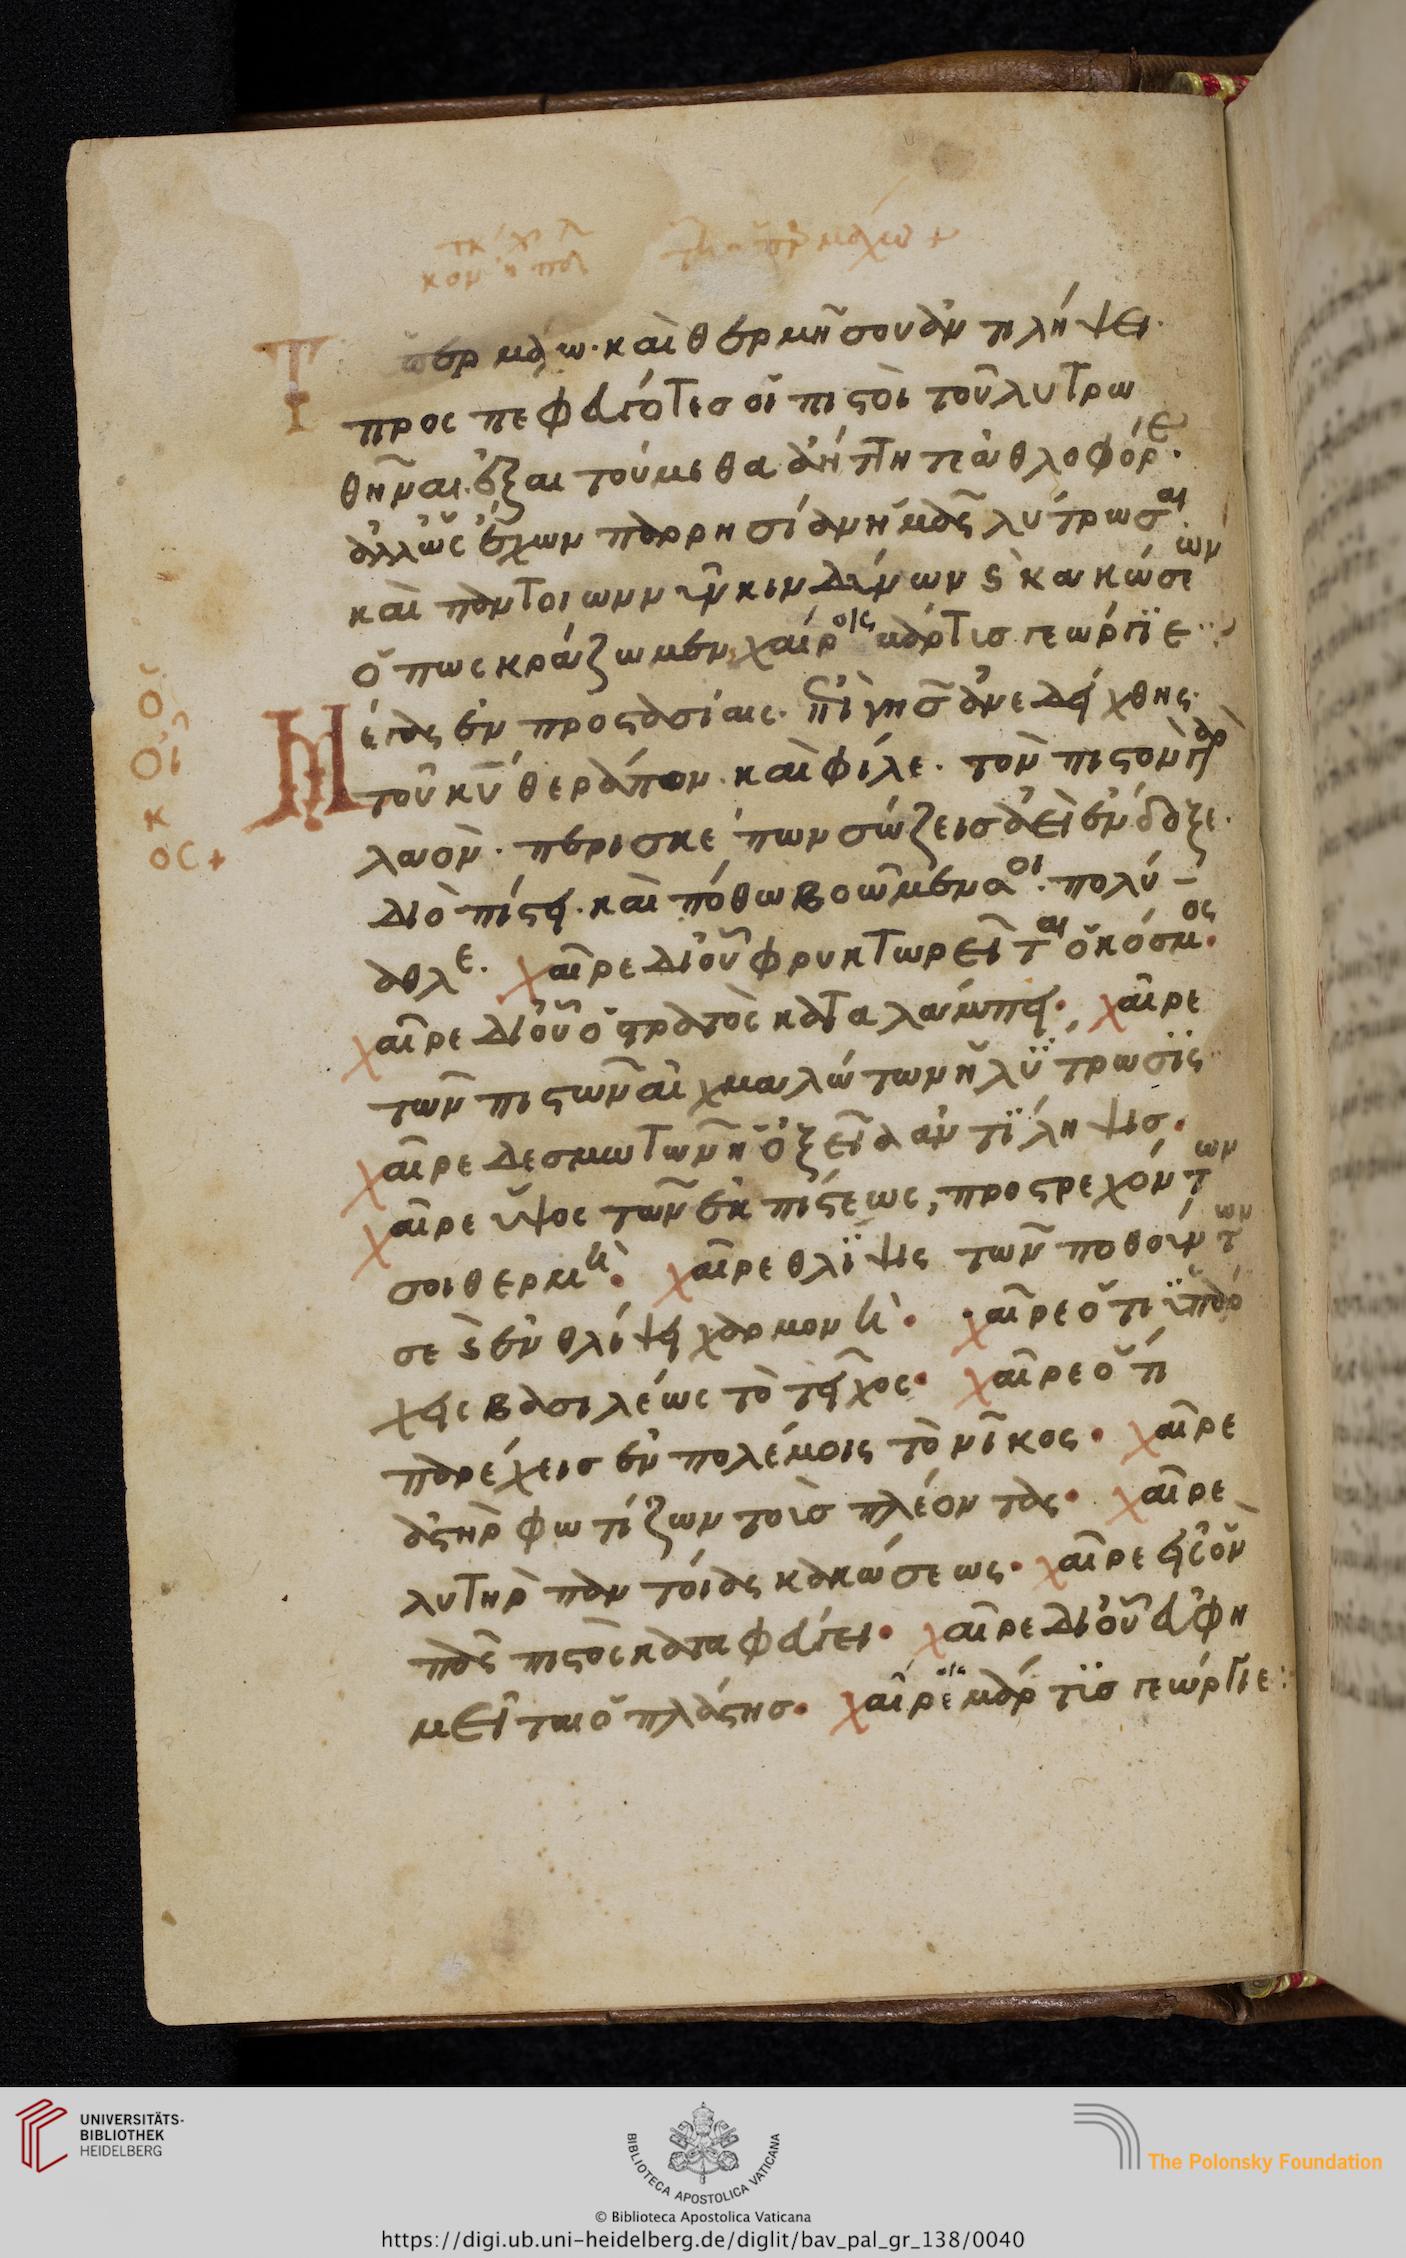 Τῶ ὑπερμάχω· καὶ θερμῆ σου ἀντιλήψει·
προσπεφευγότες οἱ πιστοὶ τοῦ λυτρω
θῆναι. εὐξαι τούμεθα ἀήττητε ἀθλοφόρε·
ἀλλ' ὡς ἔχων παρρησίαν ἡμᾶς λύτρωσαι·
καὶ παντοίων νῦν κινδύνων καὶ κακώσεων
ὅπως κράζωμεν, χαίροις μάρτις γεώργϊε··
Μέγας ἐν προστασίαις· ἐπὶ γῆς ἀνεδείχθης·
τοῦ κυ θεράπον· καὶ φίλε· τὸν πιστὸν γὰρ
λαὸν· περισκέπων σώζεις ἀεὶ ἔνδοξε·
διὸ πίστει· καὶ πόθω βοῶμεν σοι· πολύ-
αθλε· χαῖρε δι' οὗ φρυκτωρεῖται ὁ κόσμος·
χαῖρε δι' οὗ ὁ στρατὸς καταλάμπει· χαῖρε
τῶν πιστῶν αἰχμαλώτων ἡ λϋτρωσϊς
χαῖρε δεσμωτῶν ἡ ὀξεῖα ἀντϊληψις·
χαῖρε ὕψος τῶν ἐκ πίστεως, προστρεχόντων
σοι θερμὴ· χαῖρε θλίψις τῶν ποθούντων
σε καὶ ἐν θλίψει χαρμονὴ· χαῖρε ὅτι ὑπάρ
χεις βασιλέως τὸ τεῖχος· χαῖρε ὅτι
παρέχεις ἐν πολέμοις τὸ νῖκος· χαῖρε
ἀστὴρ φωτίζων τοὺς πλέοντας· χαῖρε
λυτὴρ παντοίας κακώσεως· χαῖρε εἰς ὃν
πᾶς πιστὸς καταφεύγει· χαῖρε δι' οὗ εὐφη
μεῖται ὁ πλάστης· χαίροις μάρτϊς γεώργιε:
ὁ
οἱ
κ
ος +
UNIVERSITÄTS-
BIBLIOTHEK
HEIDELBERG
BIBLIOTECA APOSTOLICA VATICANA
The Polonsky Foundation
© Biblioteca Apostolica Vaticana
https://digi.ub.uni-heidelberg.de/diglit/bav_pal_gr_138/0040